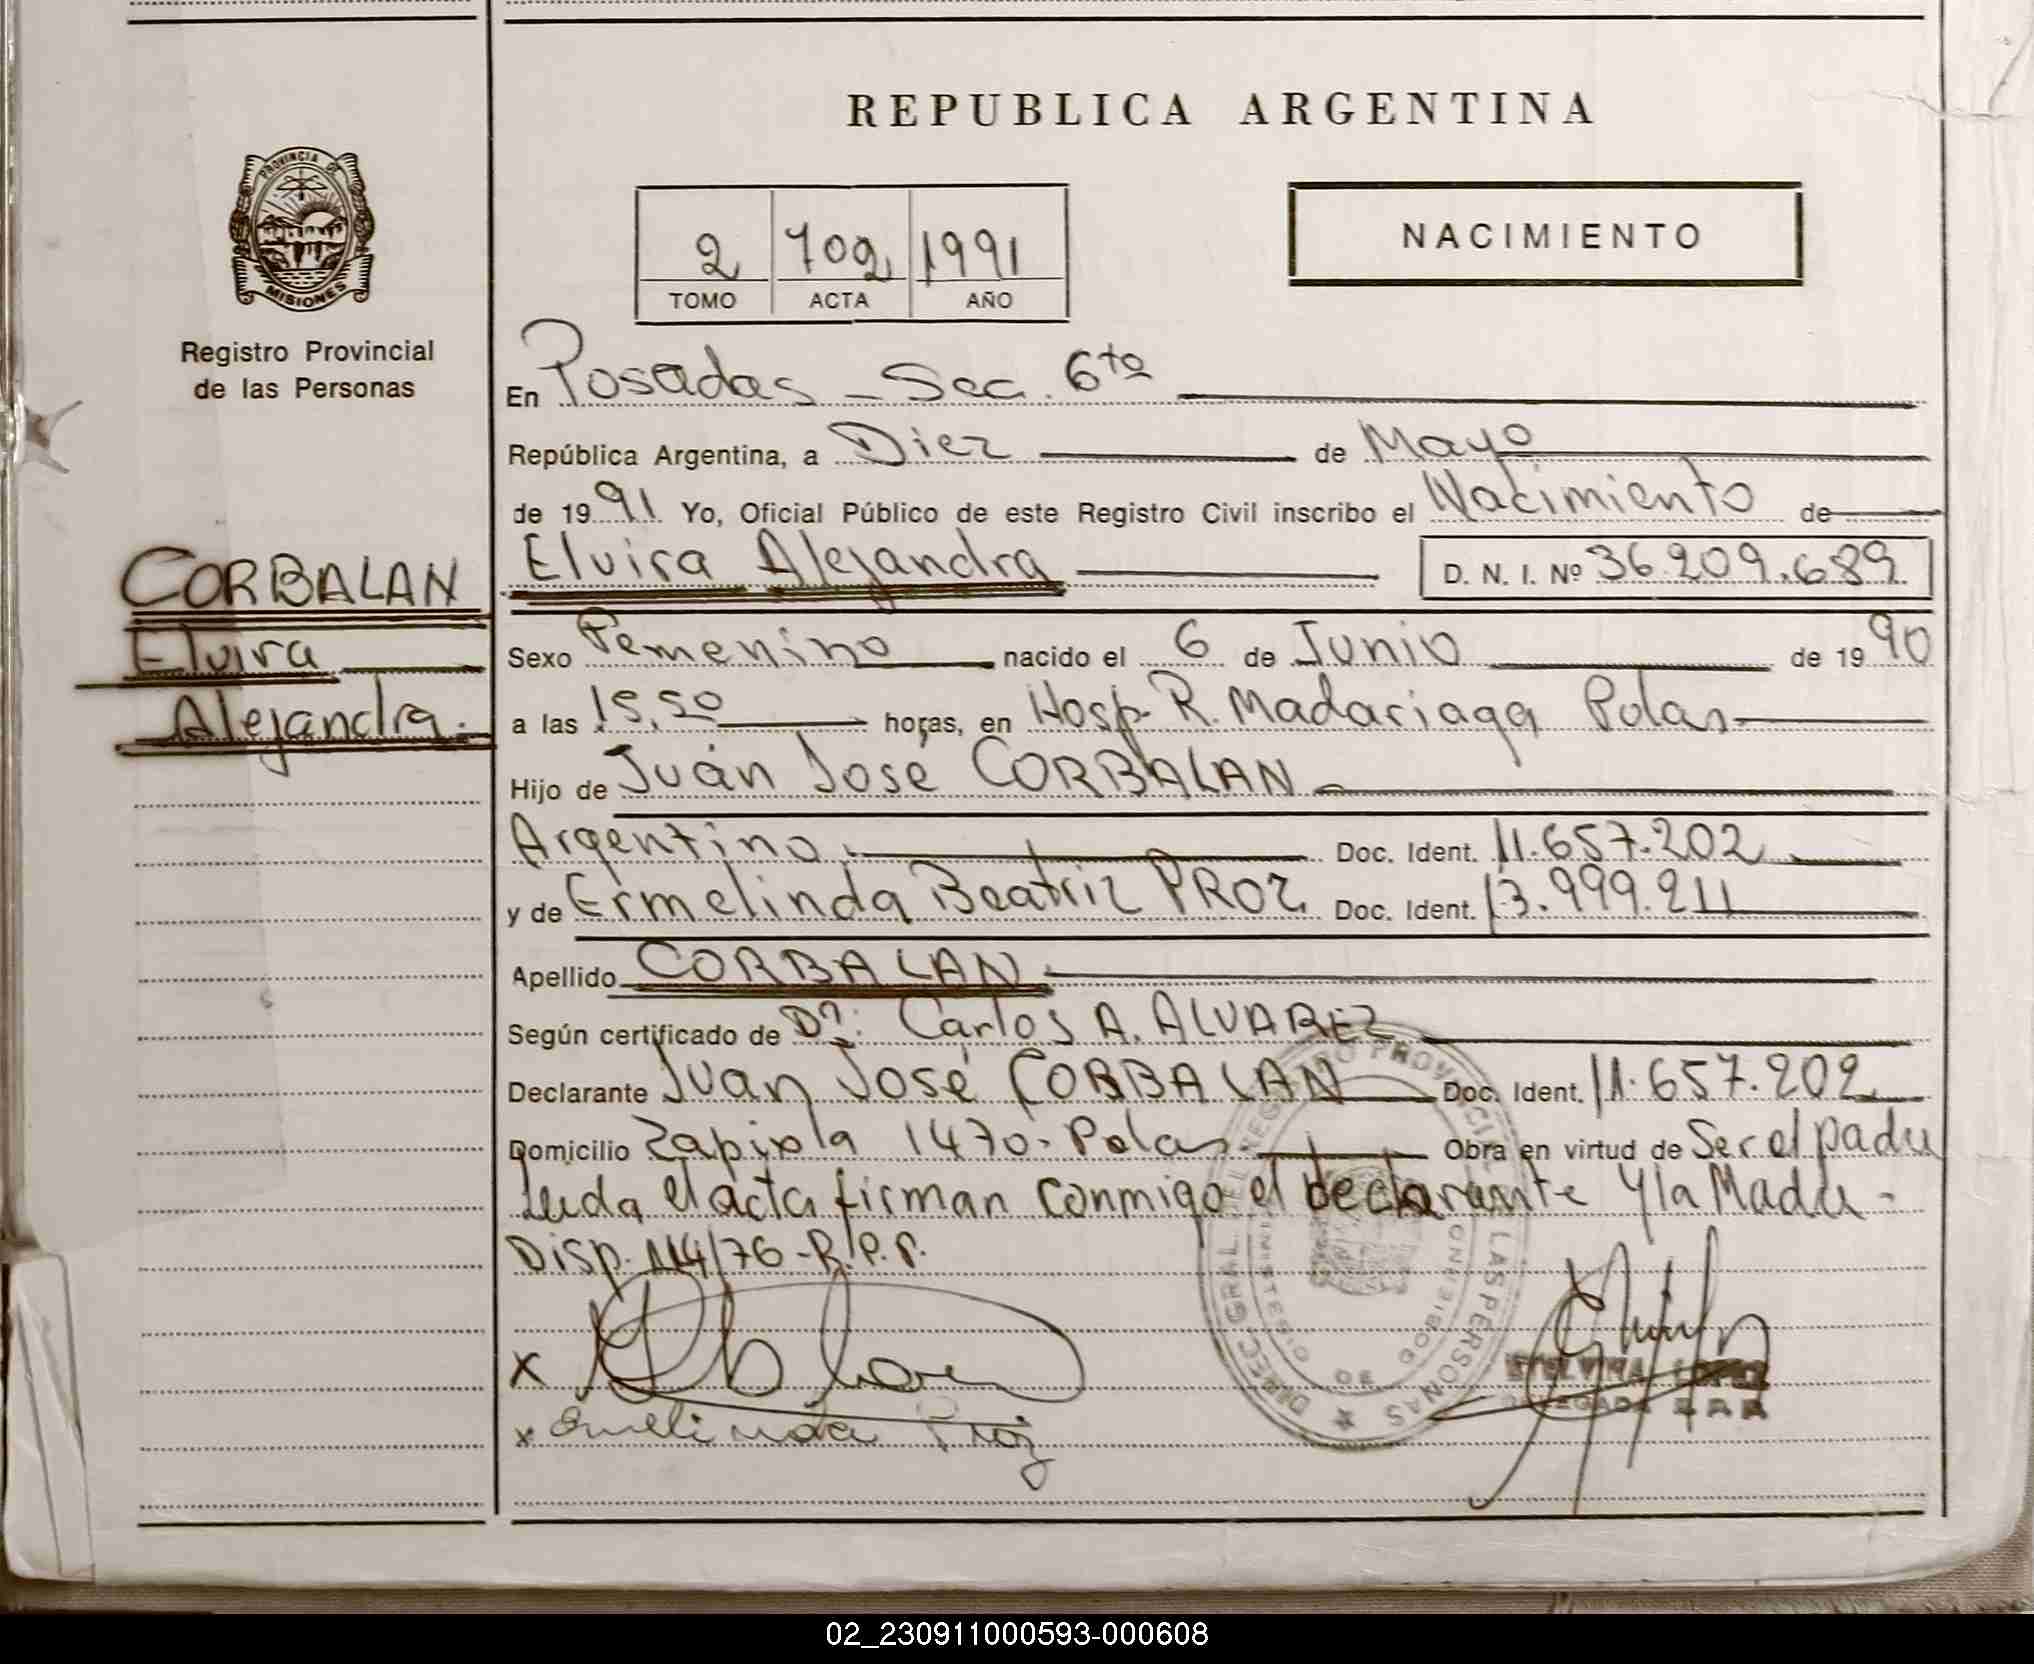 REPUBLICA ARGENTINA
PROVINCIA DE
MISIONES
Registro Provincial
de las Personas
2 702 1991
TOMO ACTA AÑO
NACIMIENTO
En Posadas - Sec. 6ta
República Argentina, a Diez de Mayo
de 1991 Yo, Oficial Público de este Registro Civil inscribo el Nacimiento de
CORBALAN
Elvira
Alejandra.
Elvira Alejandra D. N. I. Nº 36.209.689
Sexo Femenino nacido el 6 de Junio de 1990
a las 15,50 horas, en Hosp. R. Madariaga Pdas
Hijo de Juan José CORBALAN
Argentino. Doc. Ident. 11.657.202
y de Ermelinda Beatriz PROZ Doc. Ident. 13.999.211
Apellido CORBALAN
Según certificado de Dr: Carlos A. ALVAREZ
Declarante Juan José CORBALAN Doc. Ident. 11.657.202
Domicilio Zapiola 1470 - Pdas Obra en virtud de Ser el padre
Leida el acta firman conmigo el declarante y la Madre -
Disp. 114/76 - R.P.P.
x
x Ermelinda Proz
DIREC. GRAL. DEL REGISTRO PROVINCIAL DE LAS PERSONAS
MINISTERIO DE GOBIERNO
ETELVINA LOPEZ
DELEGADA
02_230911000593-000608